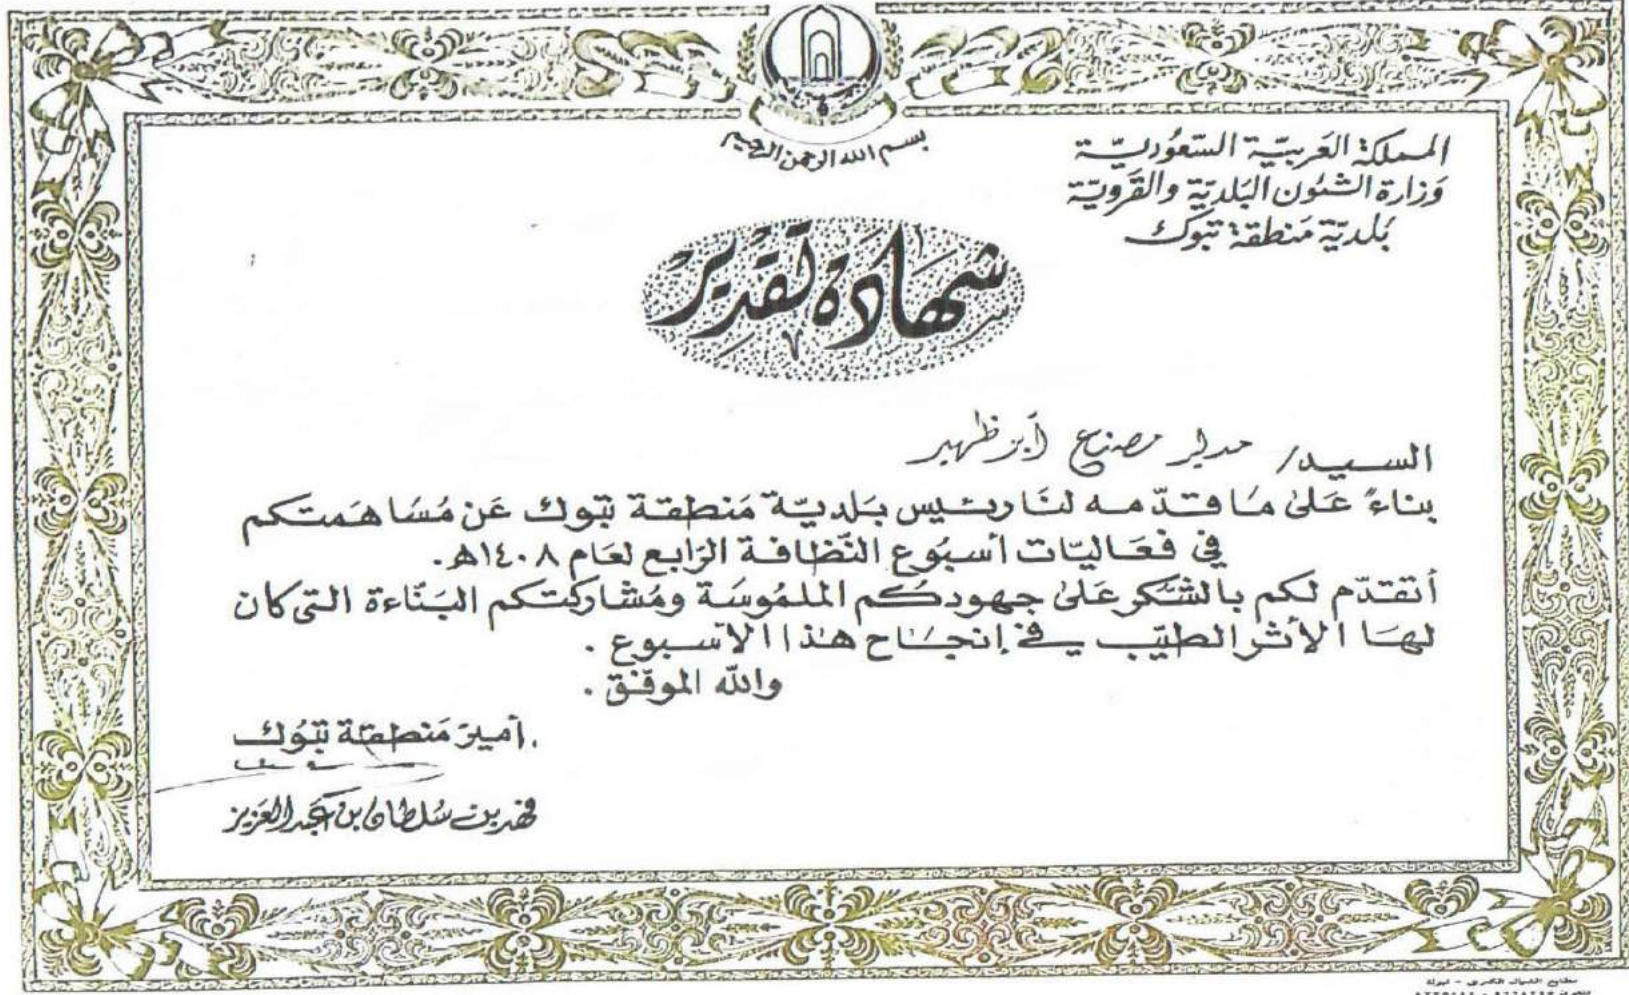 بسم الله الرحمن الرحيم
المملكة العَربيّة السّعُوديّة
وَزارة الشئون البَلديّة والقَرويّة
بَلديّة مَنطقة تبوك
شهَادَة تقدير
السيد/ مدير مصنع أبو ظهير
بناءً عَلىٰ مَا قدّمه لنَا رئيس بَلديّة مَنطقة تبوك عَن مُسَاهَمتكم
في فعَاليّات أسبُوع النّظافة الرَابع لعَام ١٤٠٨هـ.
أتقدّم لكم بالشكر عَلىٰ جهودكُم الملمُوسَة ومُشاركتكم البَنّاءة التى كان
لهَا الأثر الطيّب في إنجَاح هذا الاسبوع .
والله الموفّق .
أميرَ مَنطقة تبُوك
فهد بن سُلطان بن عَبد العَزيز